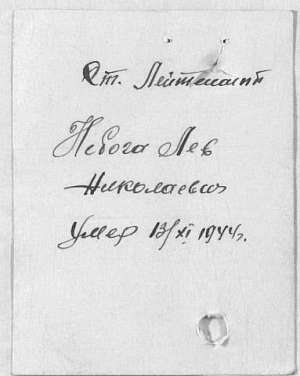 Ст. Лейтенант
Небога Лев
Николаевич
Умер 13/XI 1944г.